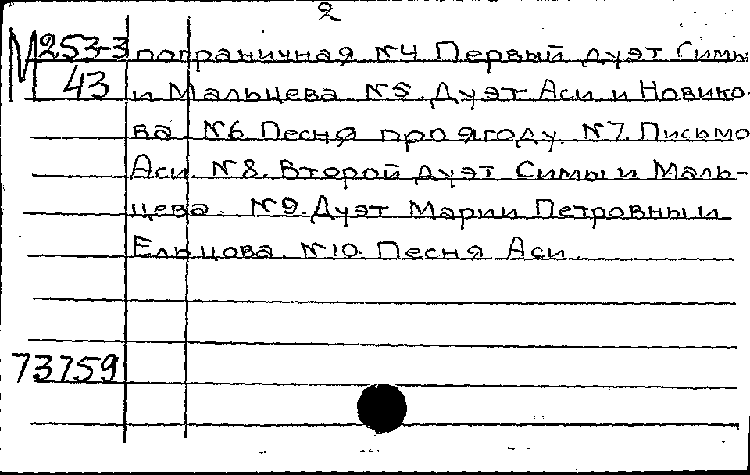 2
М253-3 пограничная №4 Первый дуэт Симы
43 и Мальцева №5. Дуэт Аси и Новико-
ва №6 Песня про ягоду. №7. Письмо
Аси №8. Второй дуэт Симы и Маль-
цева. №9. Дуэт Марии Петровны и
Ельцова. №10. Песня Аси.
73759